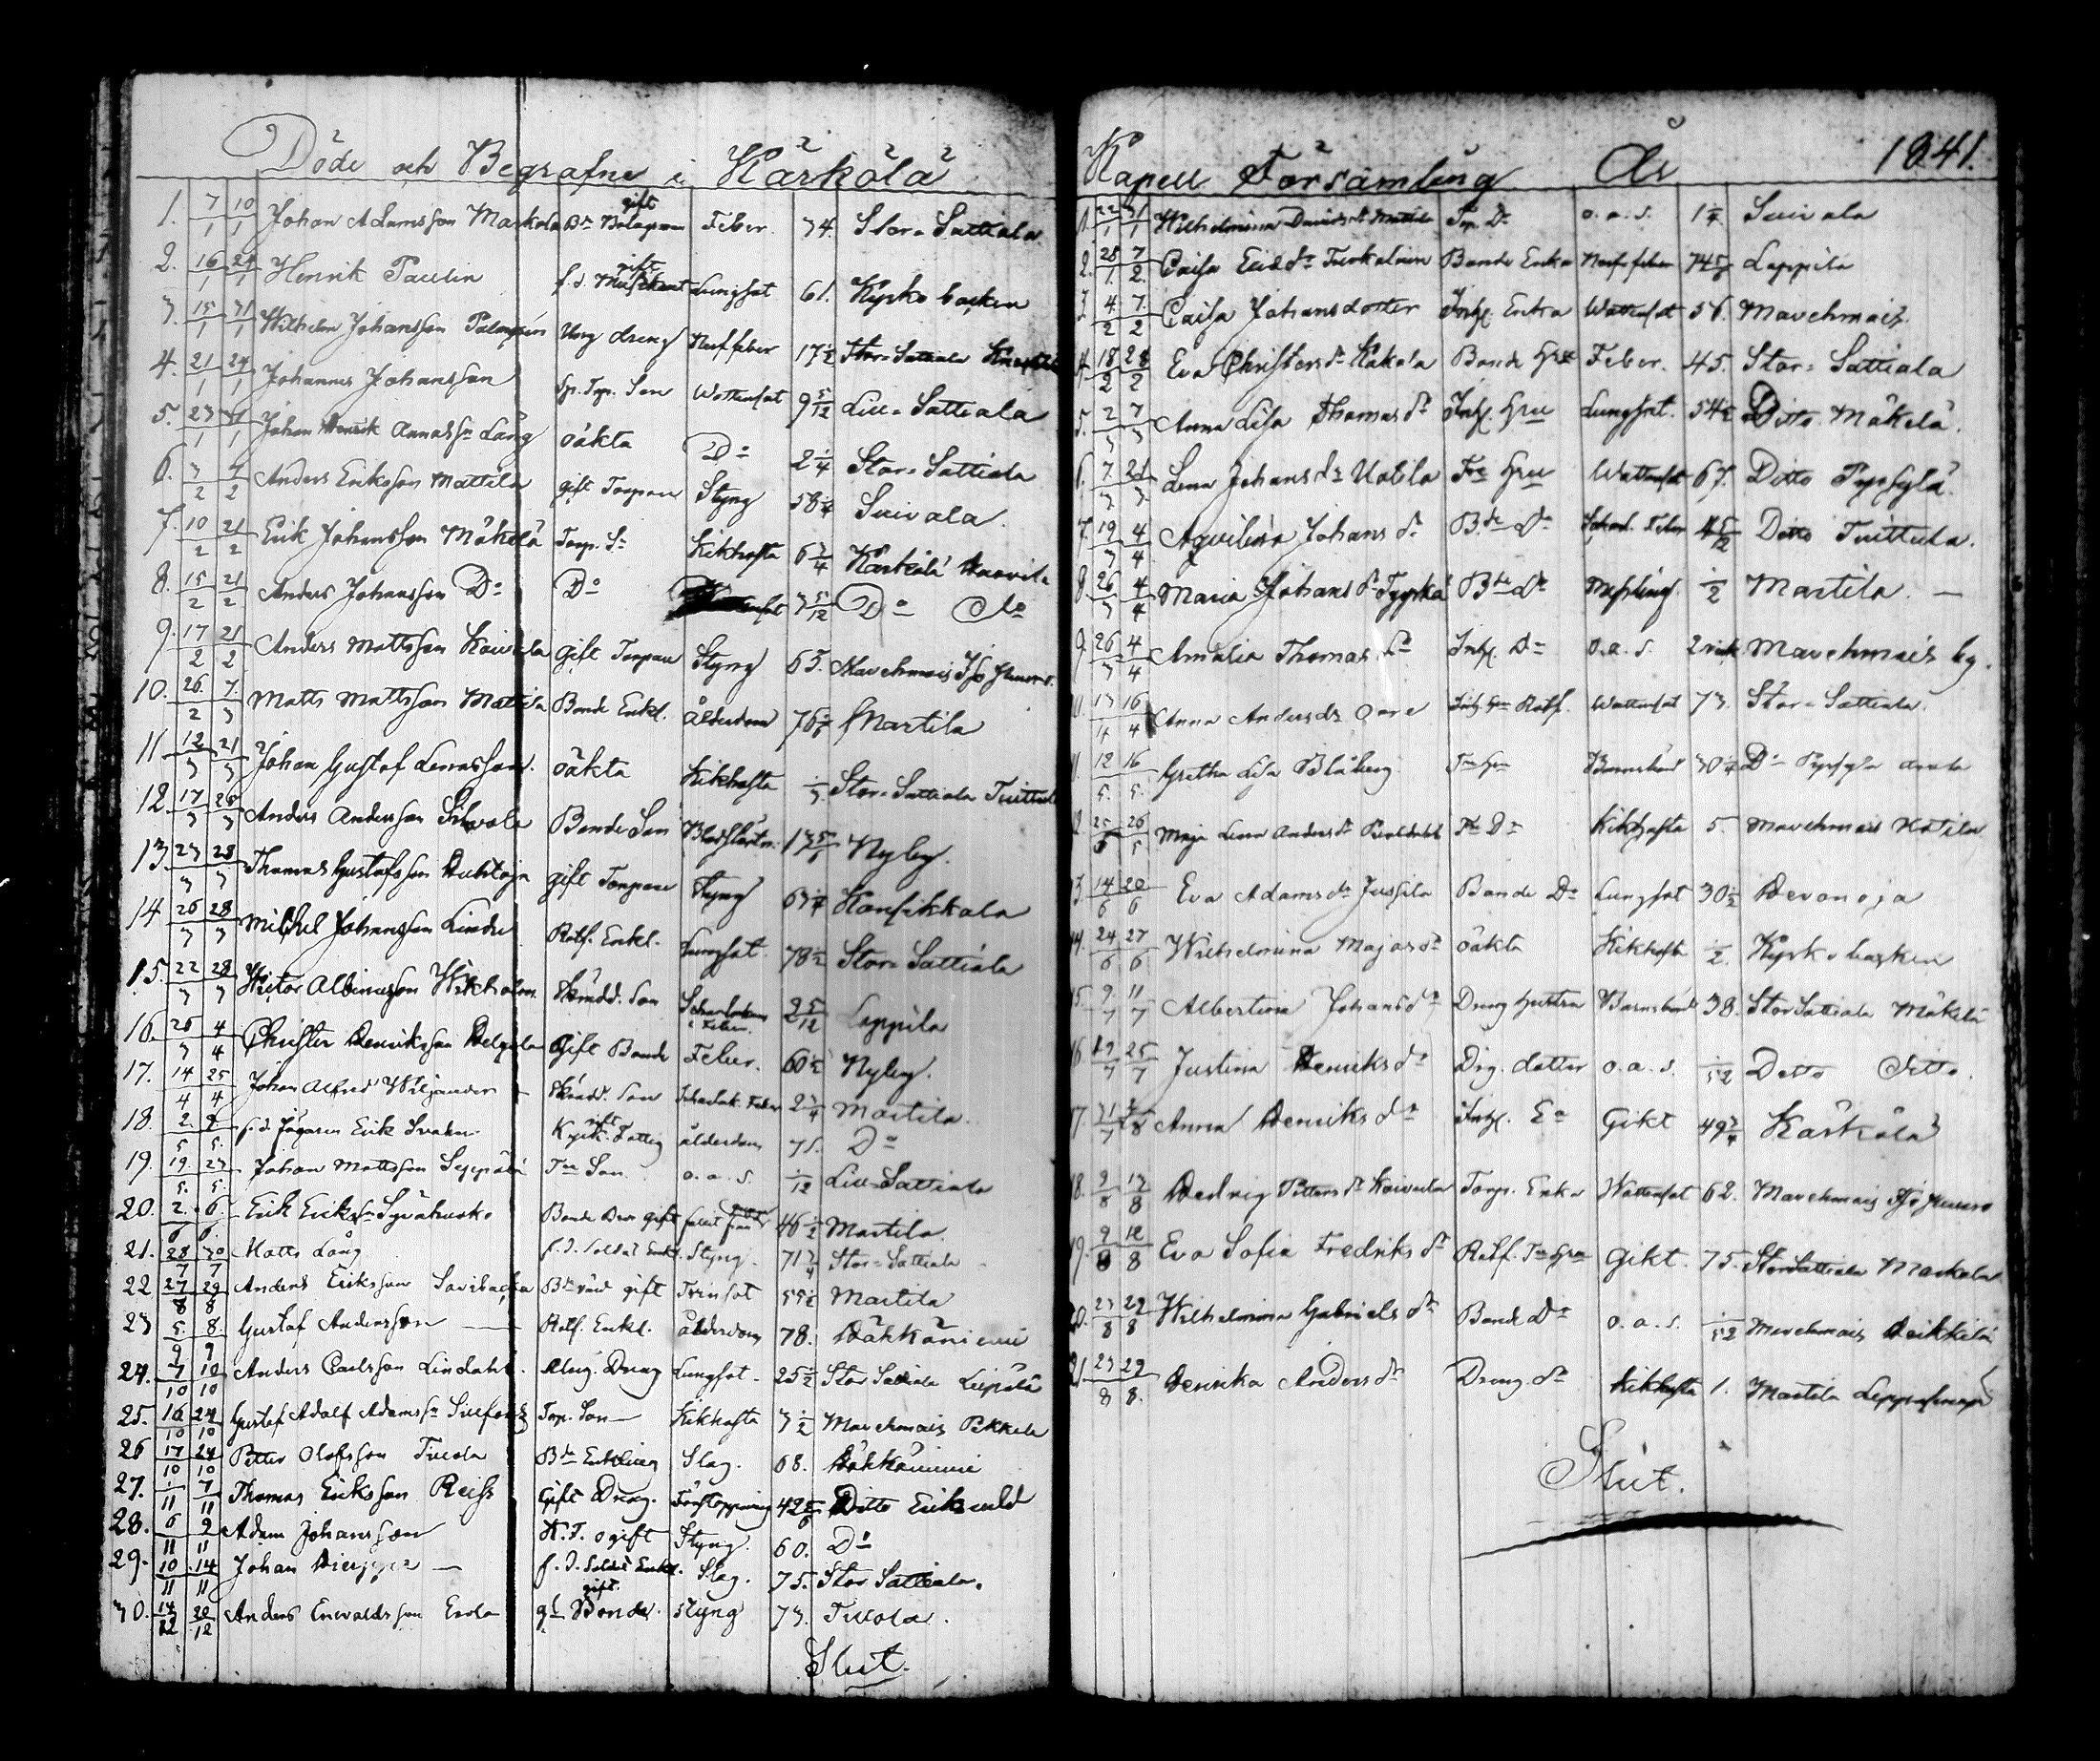 Döde och Begrafne i Kärkölä
1. 7/1 10/1 Johan Adamsson Markola Bd Bolagsman gift Feber. 74. Stor-Sattiala
2. 16/1 24/1 Henrik Paulin f.d. Musikant gift Lungsot 61. Kyrko backen
3. 15/1 31/1 Wilhelm Johansson Palmgren Ung dreng Nerffeber 17 1/2 Stor-Sattiala
4. 21/1 24/1 Johannes Johansson Sp. Torp. Son Wattensot 9 5/12 Lill-Sattiala
5. 23/1 31/1 Johan Henrik Annasson Lång oäkta Do 2 1/4 Stor-Sattiala
6. 3/2 7/2 Anders Eriksson Mattila gift Torpare Styng 58 1/4 Suivala.
7. 10/2 21/2 Erik Johansson Mäkelä Torp. Sn Kikhosta 6 3/4 Kärkölä Huovila
8. 15/2 21/2 Anders Johansson Do Do 3 5/12 Do Do
9. 17/2 21/2 Anders Mattsson Koivula gift Torpare Styng 65. Marchmais Iso Hunnr.
10. 26/2 7/3 Matts Mattsson Mattila Bonde Enkl. ålderdom 76 Martila
11. 12/3 21/3 Johan Gustaf Lenasson. oäkta Kikhosta 1/3 Stor-Sattiala Tuittula
12. 17/3 28/3 Anders Andersson Silvola Bonde Son 13 5/6 Nyby.
13. 23/3 28/3 Thomas Gustafsson Huhtoja gift Torpare Styng 63 1/4 Hongikkala
14 26/3 28/3 Michel Johansson Lindu Rotf. Enkl. Lungsot. 78 1/2 Stor-Sattiala
15. 22/3 28/3 Victor Albinusson Wikholm Skrädd. Son Scharlakans Feber. 2 5/12 Lappila
16. 26/3 4/4 Christer Henriksson Helgola Gift Bonde Feber. 60 1/2 Nyby.
17. 14/4 25/4 Johan Alfred Wiljander Skrädd. Son Scharlak. Feber 2 3/4 Martila.
18. 2/5 9/5 f.d. Jägaren Erik Svahn Kyrk. Fattig gift ålderdom 71. Do
19. 19/5 23/5 Johan Mattsson Seppälä Trp Son o.a.s. 1/12 Lill-Sattiala
20. 2/6 6/6 Erik Eriksson Syvähuoko Bonde Drän gift 46 1/2 Martila.
21. 28/7 30/7 Matts Lång f.d. Soldat Enkl. Styng. 71 3/4 Stor-Sattiala
22 27/8 29/8 Anders Eriksson Savibacka Bde gift Tvinsot 55 1/2 Martila
23 5/9 8/9 Gustaf Andersson Rotf. Enkl. ålderdom 78. Hähkäniemi
24. 7/10 10/10 Anders Carlsson Lindahl. Dreng Lungsot. 25 1/2 Stor Sattiala Leipälä
25. 16/10 24/10 Gustaf Adolf Adamsson Torp. Son Kikhosta 3 1/2 Marchmais Pekkala
26 17/10 24/10 Petter Olofsson Tuola Bde Enkling Slag. 68. Hähkäniemi
27. 1/11 7/11 Thomas Eriksson Reiss Gift Dreng. Förstoppning 42 5/6 Ditto
28. 6/11 9/11 Adam Johansson K.F. ogift Styng. 60. Do
29. 10/11 14/11 Johan f.d. Soldat Enkl. Slag. 75. Stor Sattiala.
30. 14/12 20/12 Anders Enwaldsson Erola gl Bonde gift. styng 73. Tuola.
Slut.
Kapell Församling År 1841.
1. 22/1 31/1 Wilhelmina Davidsdr Mattila Torp. Dr o.a.s. 1 1/4 Suivala
2. 28/1 7/2 Caisa Ericsdr Turkulainen Bonde Enka Nerffeber 74 5/6 Lappila
3. 4/2 7/2 Caisa Johansdotter Inhs. Enka Wattensot 56. Marchmais.
4. 18/2 28/2 Eva Christersdr Kakola Bonde Hru Feber. 45. Stor-Sattiala
5. 2/3 7/3 Anna Lisa Thomasdr Inhs. Hru Lungsot. 54 1/2 Ditto Mäkelä.
6. 7/3 21/3 Lena Johansdr Uotila Trp Hru Wattensot 67. Ditto Pyysylä.
7. 19/3 4/4 Aqvilina Johansdr Bde Dr Scharl. Feber 4 5/12 Ditto Tuittula.
8. 26/3 4/4 Maria Johansdr Tyyskä Bde dr Messling 1/2 Martila.
9. 26/3 4/4 Amalia Thomasdr Inhs. Dr o.a.s. 2 vick Marchmais by.
10. 13/4 16/4 Anna Andersdr Inhs Hru Rotf. Wattensot 73. Stor-Sattiala.
11. 12/5 16/5 Gretha Lisa Blåberg Trp Hru Barnsbörd 30 1/4 Do Pyysylä
12. 25/5 26/5 Maja Lena Andersdr Trp Dr Kikhosta 5. Marchmais Uotila
13. 14/6 20/6 Eva Adamsdr Jussila Bonde Dr Lungsot 30 1/2 Hevonoja
14. 24/6 27/6 Wilhelmina Majasdr oäkta Kikhosta 1/2 Kyrkobacken
15. 9/7 11/7 Albertina Johansdr Dreng Hustru Barnsbörd 38. Stor Sattiala Mäkelä
16. 19/7 25/7 Justina Henriksdr Drg. dotter o.a.s. 1/52 Ditto Ditto.
17. 31/7 1/8 Anna Henriksdr Inhs. Ea Gikt 49 3/4 Kärkölä
18. 9/8 12/8 Hedvig Pettersdr Koivula Torp. Enka Wattensot 62. Marchmais Iso Hunnr
19. 9/8 12/8 Eva Sofia Fredriksdr Rotf. Trp Hru Gikt. 75. Stor Sattiala Markola
20. 23/8 29/8 Wilhelmina Gabrielsdr Bonde Dr o.a.s. 1/52 Marchmais Heikkilä
21. 23/8 29/8 Henrika Andersdr Dreng. dr Kikhosta 1. Martila
Slut.